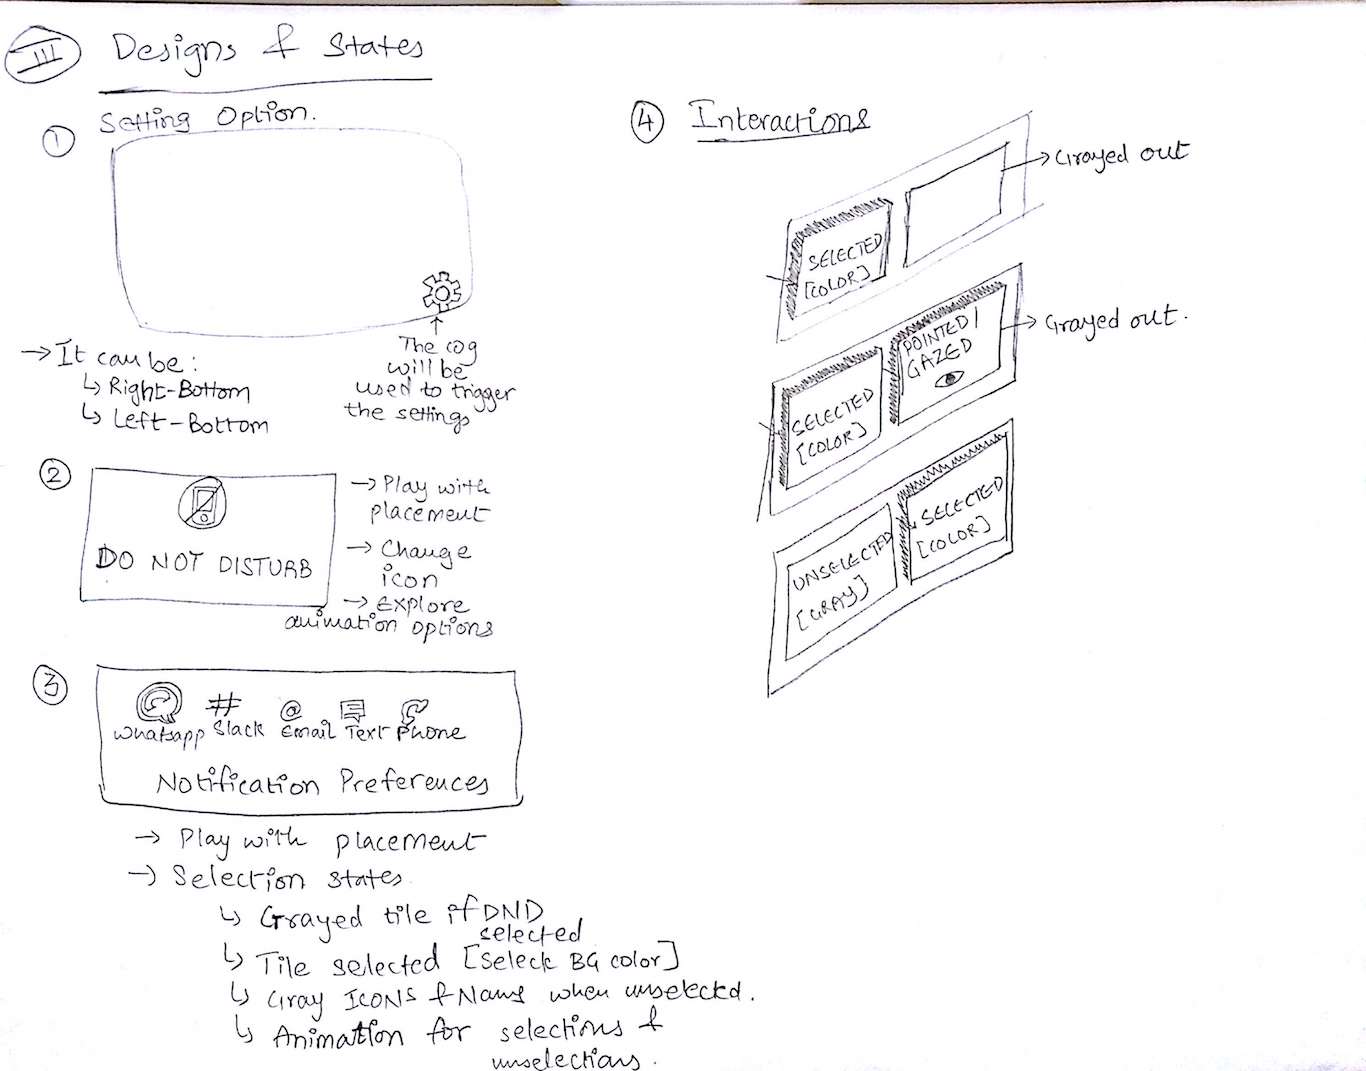 III Designs & States
① Setting Option.
The cog
will be
used to trigger
the settings
→ It can be:
↳ Right-Bottom
↳ Left-Bottom
②
DO NOT DISTURB
→ Play with
placement
→ Change
icon
→ Explore
animation options
③
Whatsapp Slack Email Text Phone
# @
Notification Preferences
→ Play with placement
→ Selection states
↳ Grayed tile if DND
selected
↳ Tile selected [Select BG color]
↳ Gray ICONS & Name when unselected.
↳ Animation for selections &
unselections.
④ Interactions
→ Grayed out
SELECTED
[COLOR]
→ Grayed out.
POINTED/
GAZED
SELECTED
[COLOR]
UNSELECTED
[GRAY]
SELECTED
[COLOR]